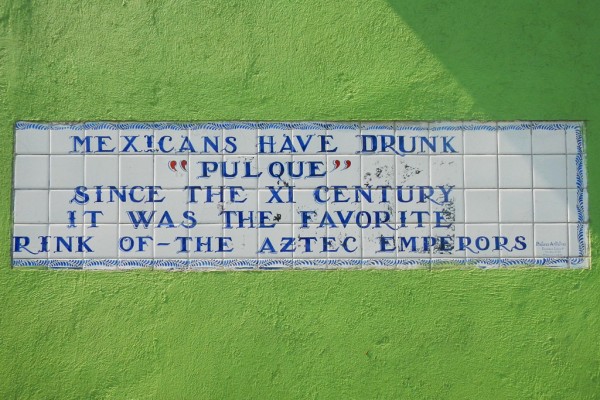 MEXICANS HAVE DRUNK
"PULQUE"
SINCE THE XI CENTURY
IT WAS THE FAVORITE
RINK OF-THE AZTEC EMPERORS